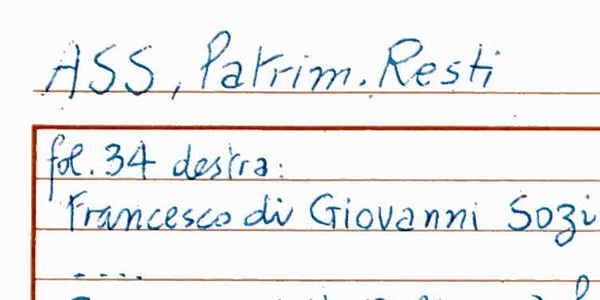 ASS, Patrim. Resti
fol. 34 destra:
Francesco di Giovanni Sozi
....